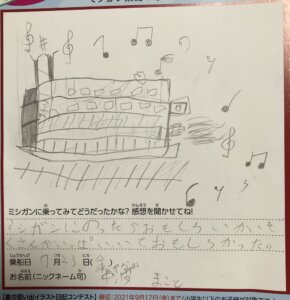 ミシガンに乗ってみてどうだったかな?感想を聞かせてね!
ミシガンにのったらおもしろいかいぞ
くさんがいっぱいいておもしろかった。
乗船日 7月 3日(金)
お名前(ニックネーム可) まこと
【夏の思い出イラスト日記コンテスト】 締切:2021年9月17日(金)まで